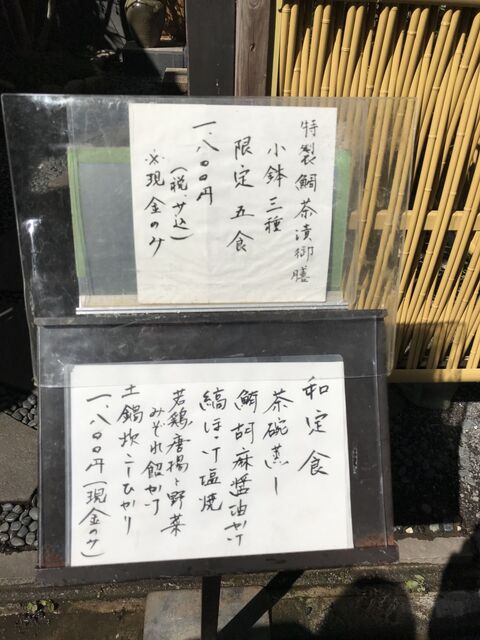 特製鯛茶漬御膳
小鉢三種
限定五食
一、八〇〇円
(税、サ込)
※現金のみ
和定食
茶碗蒸し
鯛胡麻醤油かけ
縞ほっけ塩焼
若鶏唐揚と野菜
みぞれ餡かけ
土鍋炊こしひかり
一、八〇〇円(現金のみ)